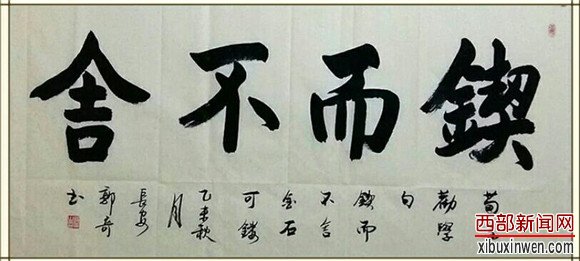 鍥而不舍
荀子
勸學
句
鍥而
不舍
金石
可鏤
乙未秋
月
長安
郭奇
书
西部新闻网
xibuxinwen.com